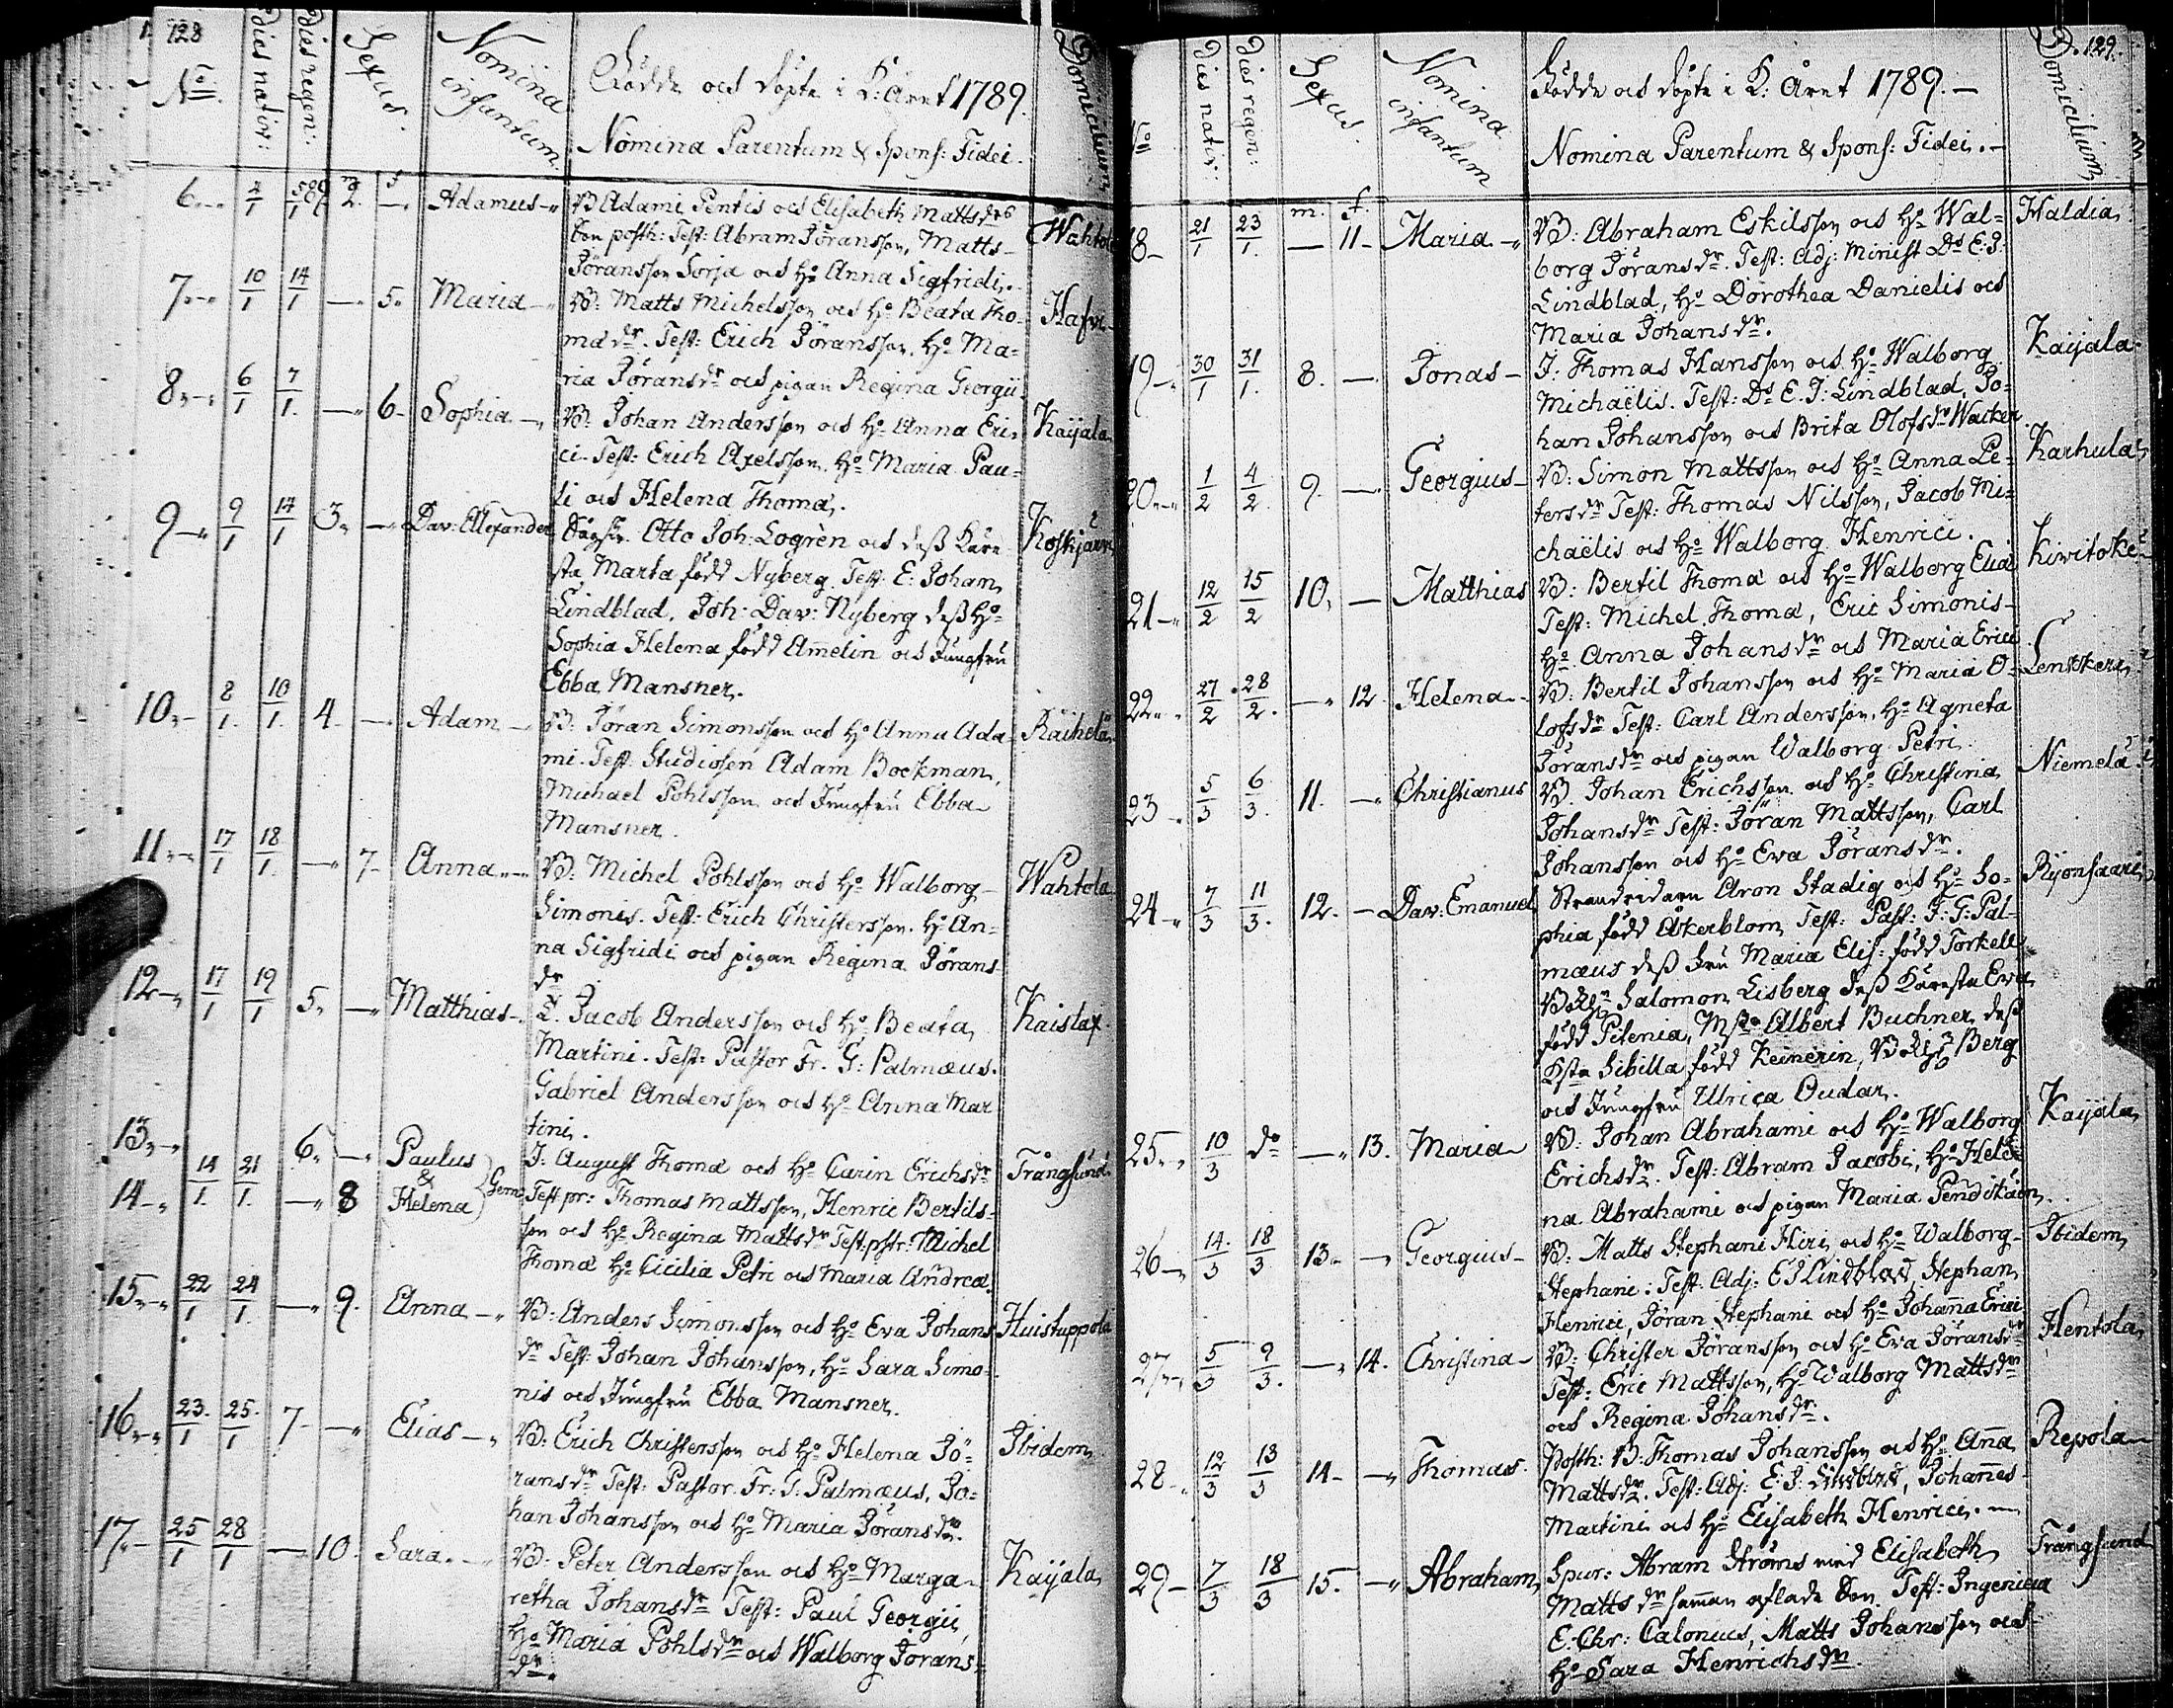 128
No.
Dies nativ:
Dies regen:
Sexus.
Nomina infantum.
Födde och döpte i K: Året 1789.
Nomina Parentum & Spons: Fidei.
Domicilium
6. 4/1 5/1 m 2. f — Adamus — B Adami Pentis och Elisabeth Mattsdrs Wahtola
Son posth: Test: Abram Jöransson, Matts
Jöransson Sorja och Ho Anna Sigfridi.
7. 10/1 14/1 — 5. Maria — B: Matts Michelsson och Ho Beata Tho=
mæ dr. Test: Erich Jöransson, Ho Ma=
ria Jöransdr och pigan Regina Georgii.
8. 6/1 7/1. — 6. Sophia — B: Johan Andersson och Ho Anna Eri= Kaijala
ci. Test: Erich Axelsson, Ho Maria Pau=
li och Helena Thomæ.
9. 9/1 14/1 3. — Dav: Allexander Otto Joh: Logrèn och dess Kära
sta Marta född Nyberg. Test: E: Johan
Lindblad, Joh: Dav: Nyberg dess Ho
Sophia Helena född Amelin och Jungfru
Ebba Mansner.
10. 8/1. 10/1. 4. — Adam — B: Jöran Simonsson och Ho Anna Ada= Räihelä
mi. Test: Studiosen Adam Bockman,
Michael Pohlsson och Jungfru Ebba
Mansner.
11. 17/1 18/1. — 7. Anna — B: Michel Pohlsson och Ho Walborg Wahtola
Simonis. Test: Erich Christersson, Ho An=
na Sigfridi och pigan Regina Jörans
dr
12. 17/1 19/1 5. — Matthias — Jacob Andersson och Ho Beata Kaislax.
Martini. Test: Pastor Fr. G: Palmæus.
Gabriel Andersson och Ho Anna Mar
tini.
13. 14/1. 21/1. 6. — Paulus J: August Thomæ och Ho Carin Erichsdr Trångsund
& Gem
14. — 8 Helena Test pr: Thomas Mattsson, Henric Bertils=
son och Ho Regina Mattsdr Test: pstr: Michel
Thomæ Ho Cicilia Petri och Maria Andreæ.
15. 22/1 24/1. — 9. Anna — B: Anders Simonsson och Ho Eva Johans Huistuppola
dr Test: Johan Johansson, Ho Sara Simo=
nis och Jungfru Ebba Mansner.
16. 23/1 25/1 7. — Elias — B: Erich Christersson och Ho Helena Jö= Ibidem
ransdr Test: Pastor Fr: G: Palmæus, Jo=
han Johansson och Ho Maria Jöransdr.
17. 25/1 28/1 — 10. Sara. — B: Peter Andersson och Ho Marga= Kaijala
retha Johansdr Test: Paul Georgii,
Ho Maria Pohlsdr och Walborg Jörans=
dr.
129.
No
Dies nativ:
Dies regen:
Sexus.
Nomina infantum
Födde och döpte i K: Året 1789. —
Nomina Parentum & Spons: Fidei. —
Domicilium
18. 21/1 23/1. m. — f. 11. Maria — B: Abraham Eskilsson och Ho Wal= Haldia
borg Jöransdr. Test: Adj: Minist Ds E: J:
Lindblad, Ho Dorothea Danielis och
Maria Johansdr.
19. 30/1 31/1. 8. — Jonas — J: Thomas Hansson och Ho Walborg Kaijala
Michaëlis. Test: Ds E. J: Lindblad, Jo=
han Johansson och Brita Olofsdr Wacker
20. 1/2 4/2. 9. — Georgius — B: Simon Mattsson och Ho Anna Pe= Karhula
tersdr Test: Thomas Nilsson, Jacob Mi=
chaëlis och Ho Walborg Henrici.
21. 12/2 15/2 10. — Matthias B: Bertil Thomæ och Ho Walborg Eliæ
Test: Michel Thomæ, Eric Simonis
Ho Anna Johansdr och Maria Erici
22. 27/2 28/2. — 12. Helena — B: Bertil Johansson och Ho Maria O=
lofsdr Test: Carl Andersson, Ho Agneta
Jöransdr och pigan Walborg Petri.
23. 5/3 6/3. 11. — Christianus B. Johan Erichsson och Ho Christina Niemelä
Johansdr Test: Jöran Mattsson, Carl
Johansson och Ho Eva Jöransdr.
24. 7/3 11/3. 12. — Dav: Emanuel Strandridaren Aron Stadig och Ho So=
phia född Åkerblom, Test: Past: F: G: Pal=
mæus dess Fru Maria Elis: född Torkell
Salomon Lisberg dess Kärasta Eva
född Pilenia, Mstr Albert Buchner dess
Ksta Sibilla född Keinerin, Berg
och Jungfru Ulrica Oudar.
25. 10/3 do — 13. Maria — B: Johan Abrahami och Ho Walborg Kaijala
Erichsdr. Test: Abram Jacobi, Ho Hele
na Abrahami och pigan Maria Pendikäin.
26. 14/3 18/3 13. — Georgius — B: Matts Stephani Hiri och Ho Walborg Ibidem
Stephani: Test: Adj: E J Lindblad, Stephan
Henrici, Jöran Stephani och Ho Johanna Erici
27. 5/3 9/3. — 14. Christina — B: Christer Jöransson och Ho Eva Jöransdr Hentola
Test: Eric Mattsson, Ho Walborg Mattsdr
och Regina Johansdr.
28. 12/3 13/3 14. — Thomas. Posth: B: Thomas Johansson och Ho Anna Repola
Mattsdr. Test: Adj: E: J: Lindblad, Johannes
Martini och Ho Elisabeth Henrici. —
29. 7/3 18/3 15. — Abraham Spur: Abram Ströms med Elisabeth Trångsund
Mattsdr samman aflade Son. Test: Ingenieur
E: Chr: Calonius, Matts Johansson och
Ho Sara Henrichsdr.